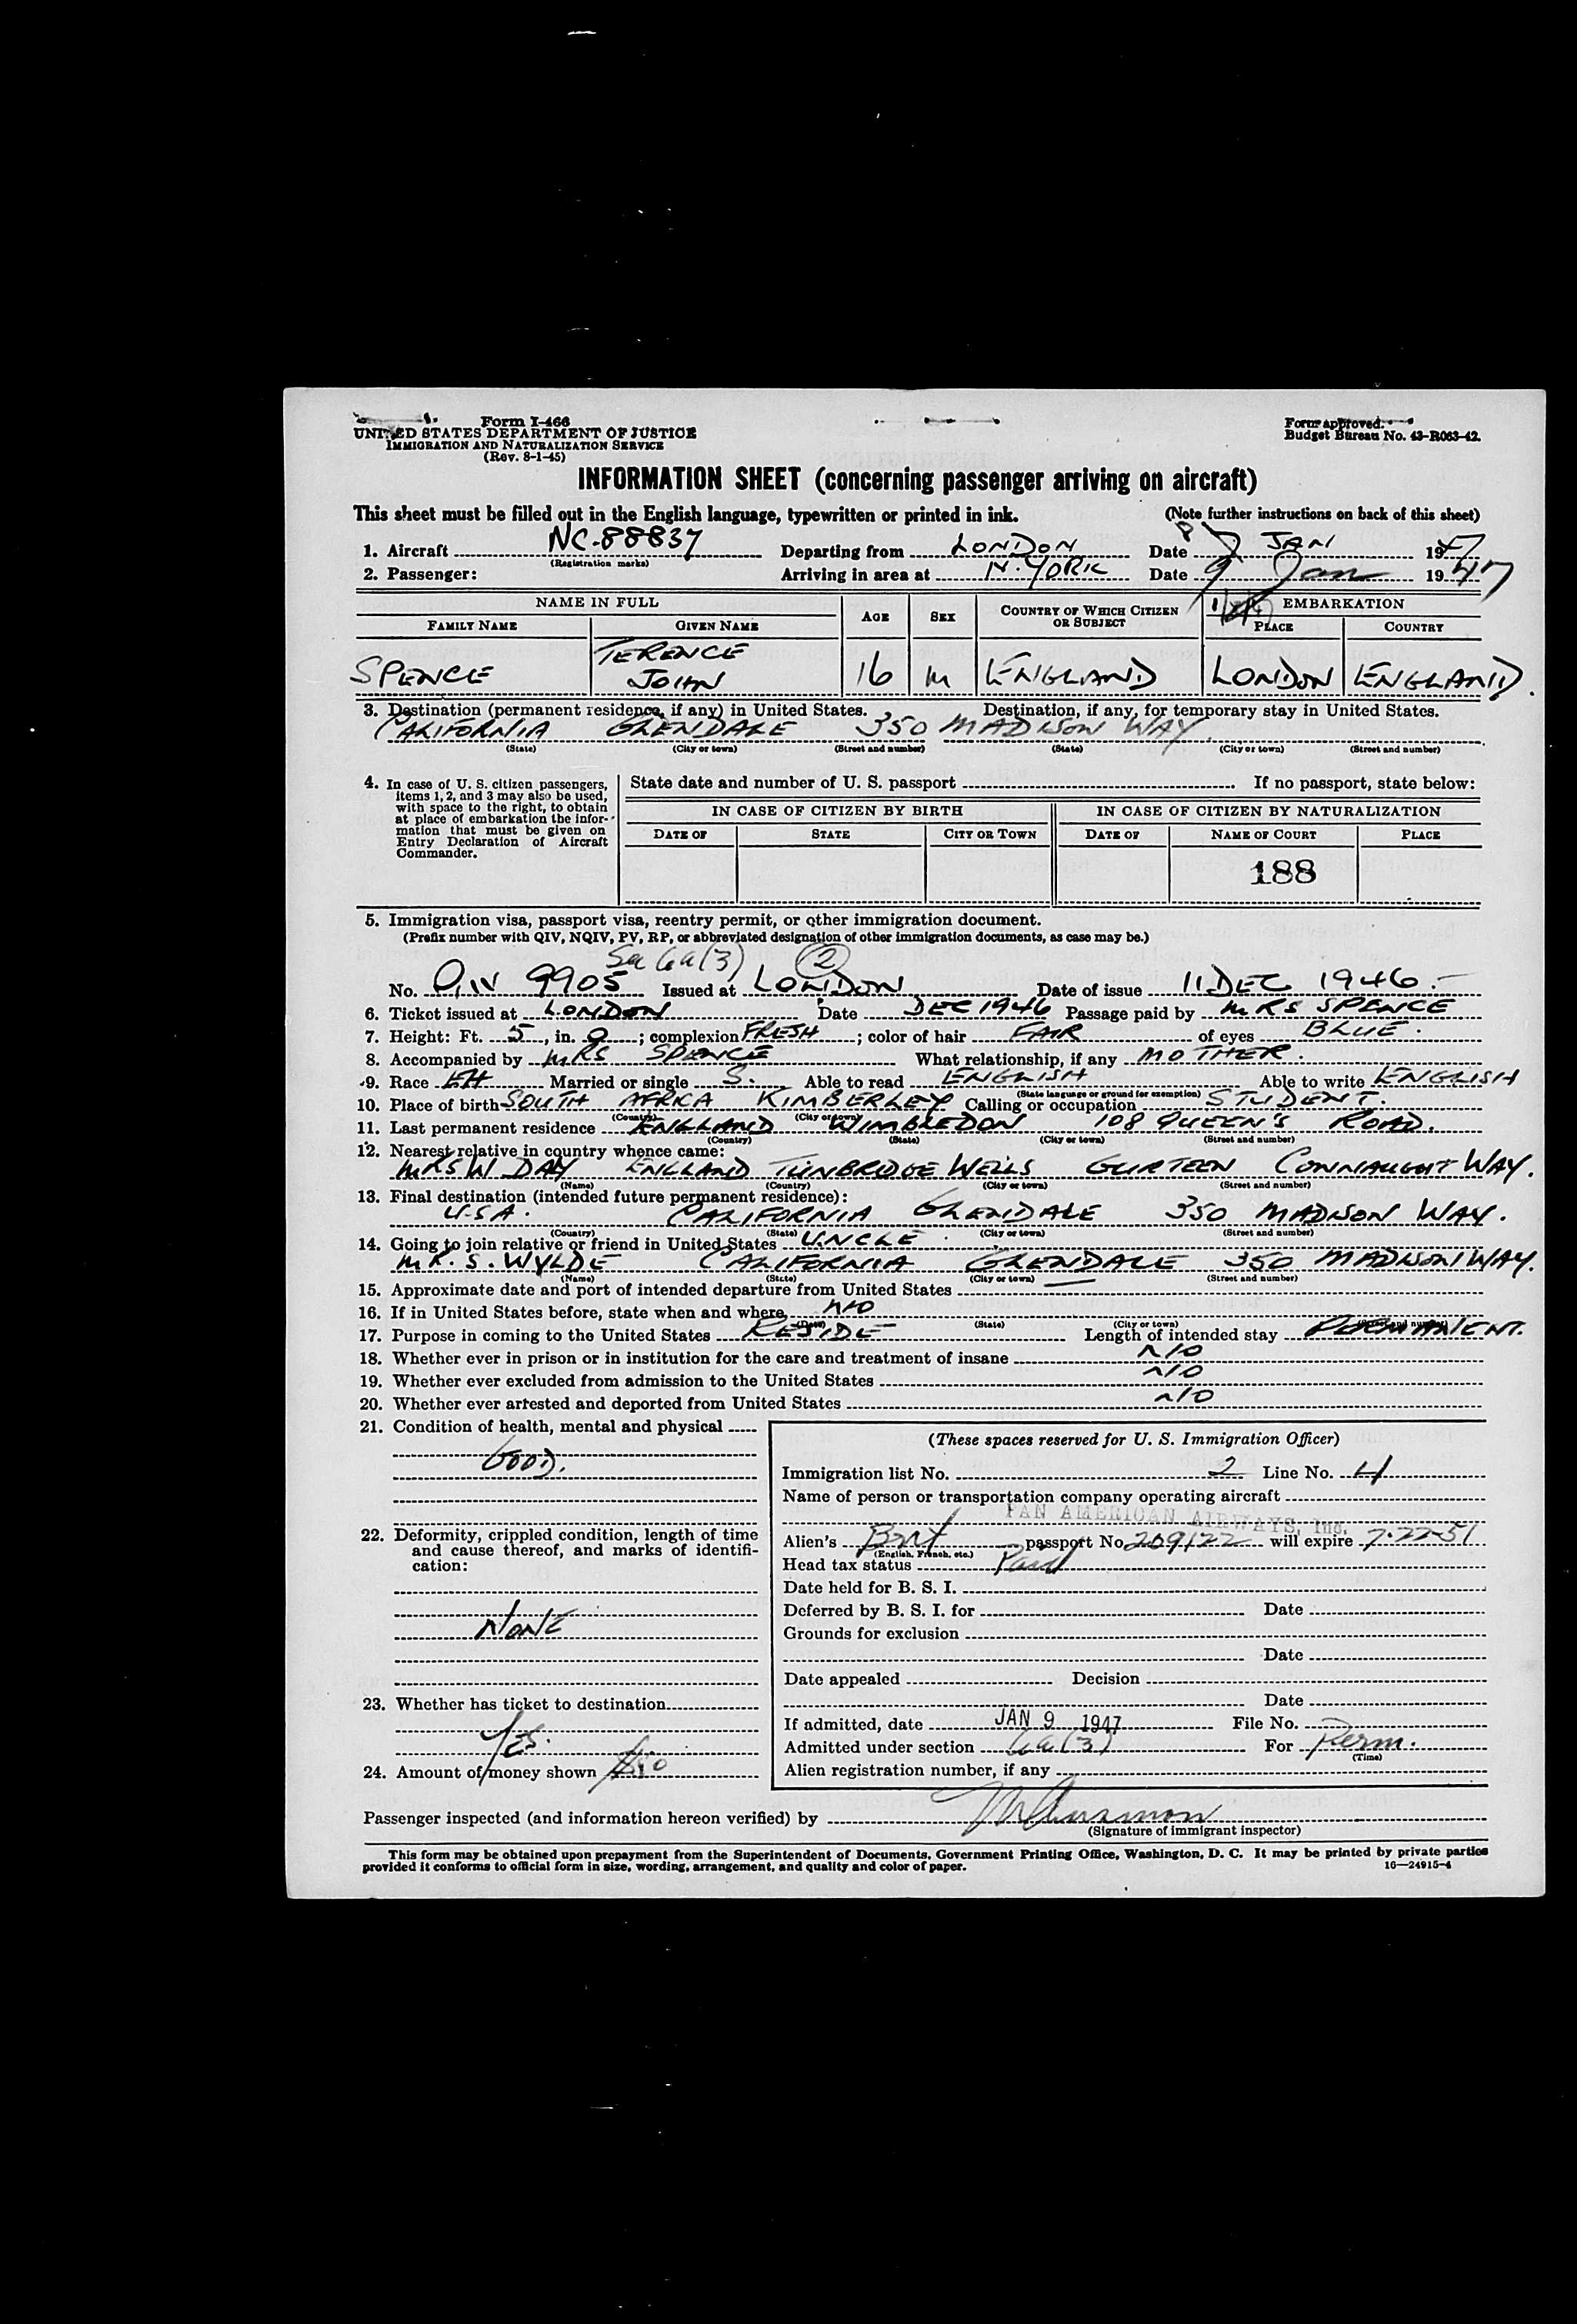 Form I-466
UNITED STATES DEPARTMENT OF JUSTICE
IMMIGRATION AND NATURALIZATION SERVICE
(Rev. 8-1-45)
Form approved.
Budget Bureau No. 43-R063-42.
INFORMATION SHEET (concerning passenger arriving on aircraft)
This sheet must be filled out in the English language, typewritten or printed in ink. (Note further instructions on back of this sheet)
1. Aircraft NC-88837 Departing from LONDON Date 8 JAN 1947
(Registration marks)
2. Passenger: Arriving in area at N. YORK Date 9 Jan 1947
NAME IN FULL AGE SEX COUNTRY OF WHICH CITIZEN OR SUBJECT EMBARKATION
FAMILY NAME GIVEN NAME PLACE COUNTRY
SPENCE TERENCE JOHN 16 M ENGLAND LONDON ENGLAND.
3. Destination (permanent residence, if any) in United States. Destination, if any, for temporary stay in United States.
CALIFORNIA GLENDALE 350 MADISON WAY.
(State) (City or town) (Street and number) (State) (City or town) (Street and number)
4. In case of U. S. citizen passengers, items 1, 2, and 3 may also be used, with space to the right, to obtain at place of embarkation the information that must be given on Entry Declaration of Aircraft Commander.
State date and number of U. S. passport If no passport, state below:
IN CASE OF CITIZEN BY BIRTH IN CASE OF CITIZEN BY NATURALIZATION
DATE OF STATE CITY OR TOWN DATE OF NAME OF COURT PLACE
188
5. Immigration visa, passport visa, reentry permit, or other immigration document.
(Prefix number with QIV, NQIV, PV, RP, or abbreviated designation of other immigration documents, as case may be.)
Sec 6a(3) (2)
No. QIV 9905 Issued at LONDON Date of issue 11 DEC 1946.
6. Ticket issued at LONDON Date DEC 1946 Passage paid by MRS SPENCE
7. Height: Ft. 5, in. 9; complexion FRESH; color of hair FAIR of eyes BLUE.
8. Accompanied by MRS SPENCE What relationship, if any MOTHER.
9. Race Married or single S. Able to read ENGLISH Able to write ENGLISH
(State language or ground for exemption)
10. Place of birth SOUTH AFRICA KIMBERLEY Calling or occupation STUDENT.
(Country) (City or town)
11. Last permanent residence ENGLAND WIMBLEDON 108 QUEEN'S ROAD.
(Country) (State) (City or town) (Street and number)
12. Nearest relative in country whence came:
MRS W. DAY ENGLAND TUNBRIDGE WELLS GURTEEN CONNAUGHT WAY.
(Name) (Country) (City or town) (Street and number)
13. Final destination (intended future permanent residence):
U.S.A. CALIFORNIA GLENDALE 350 MADISON WAY.
(Country) (State) (City or town) (Street and number)
14. Going to join relative or friend in United States UNCLE.
MR. S. WYLDE CALIFORNIA GLENDALE 350 MADISON WAY.
(Name) (State) (City or town) (Street and number)
15. Approximate date and port of intended departure from United States —
16. If in United States before, state when and where NO
(Date) (State) (City or town) (Street and number)
17. Purpose in coming to the United States RESIDE Length of intended stay PERMANENT.
18. Whether ever in prison or in institution for the care and treatment of insane NO
19. Whether ever excluded from admission to the United States NO
20. Whether ever arrested and deported from United States NO
21. Condition of health, mental and physical
GOOD.
22. Deformity, crippled condition, length of time and cause thereof, and marks of identification:
NONE
23. Whether has ticket to destination
YES.
24. Amount of money shown
(These spaces reserved for U. S. Immigration Officer)
Immigration list No. 2 Line No. 4
Name of person or transportation company operating aircraft
PAN AMERICAN AIRWAYS, Inc.
Alien's Brit passport No. 209122 will expire 7-22-51
(English, French, etc.)
Head tax status Paid
Date held for B. S. I.
Deferred by B. S. I. for Date
Grounds for exclusion
Date
Date appealed Decision
Date
If admitted, date JAN 9 1947 File No.
Admitted under section 6a(3) For Perm.
(Time)
Alien registration number, if any
Passenger inspected (and information hereon verified) by
(Signature of immigrant inspector)
This form may be obtained upon prepayment from the Superintendent of Documents, Government Printing Office, Washington, D. C. It may be printed by private parties
provided it conforms to official form in size, wording, arrangement, and quality and color of paper. 16—24915-4